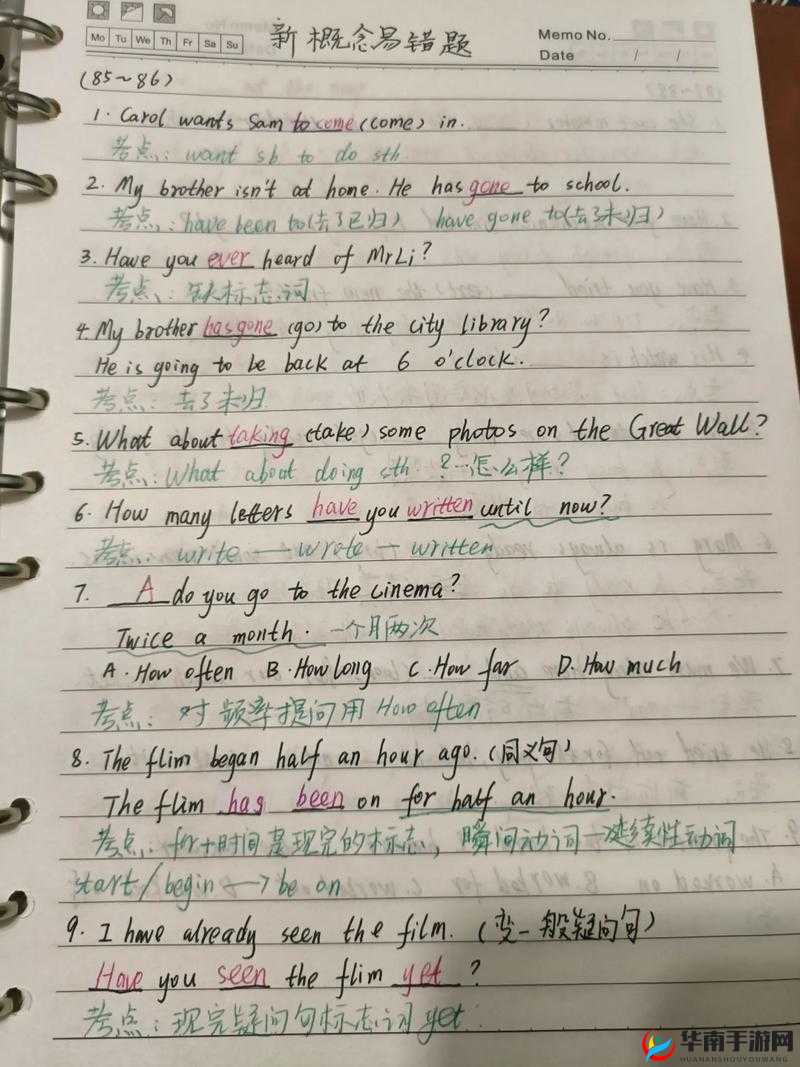 Mo Tu We Th Fr Sa Su
新概念易错题
Memo No.
Date / /
(85~86)
1. Carol wants Sam to come (come) in.
考点: want sb to do sth
2. My brother isn't at home. He has gone to school.
考点: have been to(去了已归) / have gone to(去了未归)
3. Have you ever heard of Mr Li?
考点: 缺标志词
4. My brother has gone (go) to the city library?
He is going to be back at 6 o'clock.
考点: 去了未归
5. What about taking (take) some photos on the Great Wall?
考点: What about doing sth ?…怎么样?
6. How many letters have you written until now?
考点: write — wrote — written
7. A do you go to the cinema?
Twice a month. 一个月两次
A. How often B. How long C. How far D. How much
考点: 对频率提问用 How often
8. The flim began half an hour ago. (同义句)
The flim has been on for half an hour.
考点: for+时间是现完的标志, 瞬间动词—延续性动词
start/begin —> be on
9. I have already seen the film. (变一般疑问句)
Have you seen the flim yet ?
考点: 现完疑问句标志词 yet
华南手游网
HUANANSHOUYOUWANG